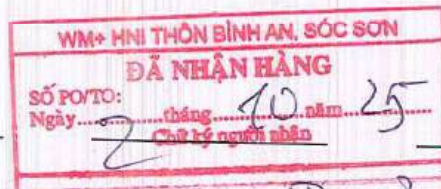 WM+ HNI THÔN BÌNH AN, SÓC SƠN
ĐÃ NHẬN HÀNG
SỐ PO/TO:
Ngày 2 tháng 10 năm 25
Chữ ký người nhận